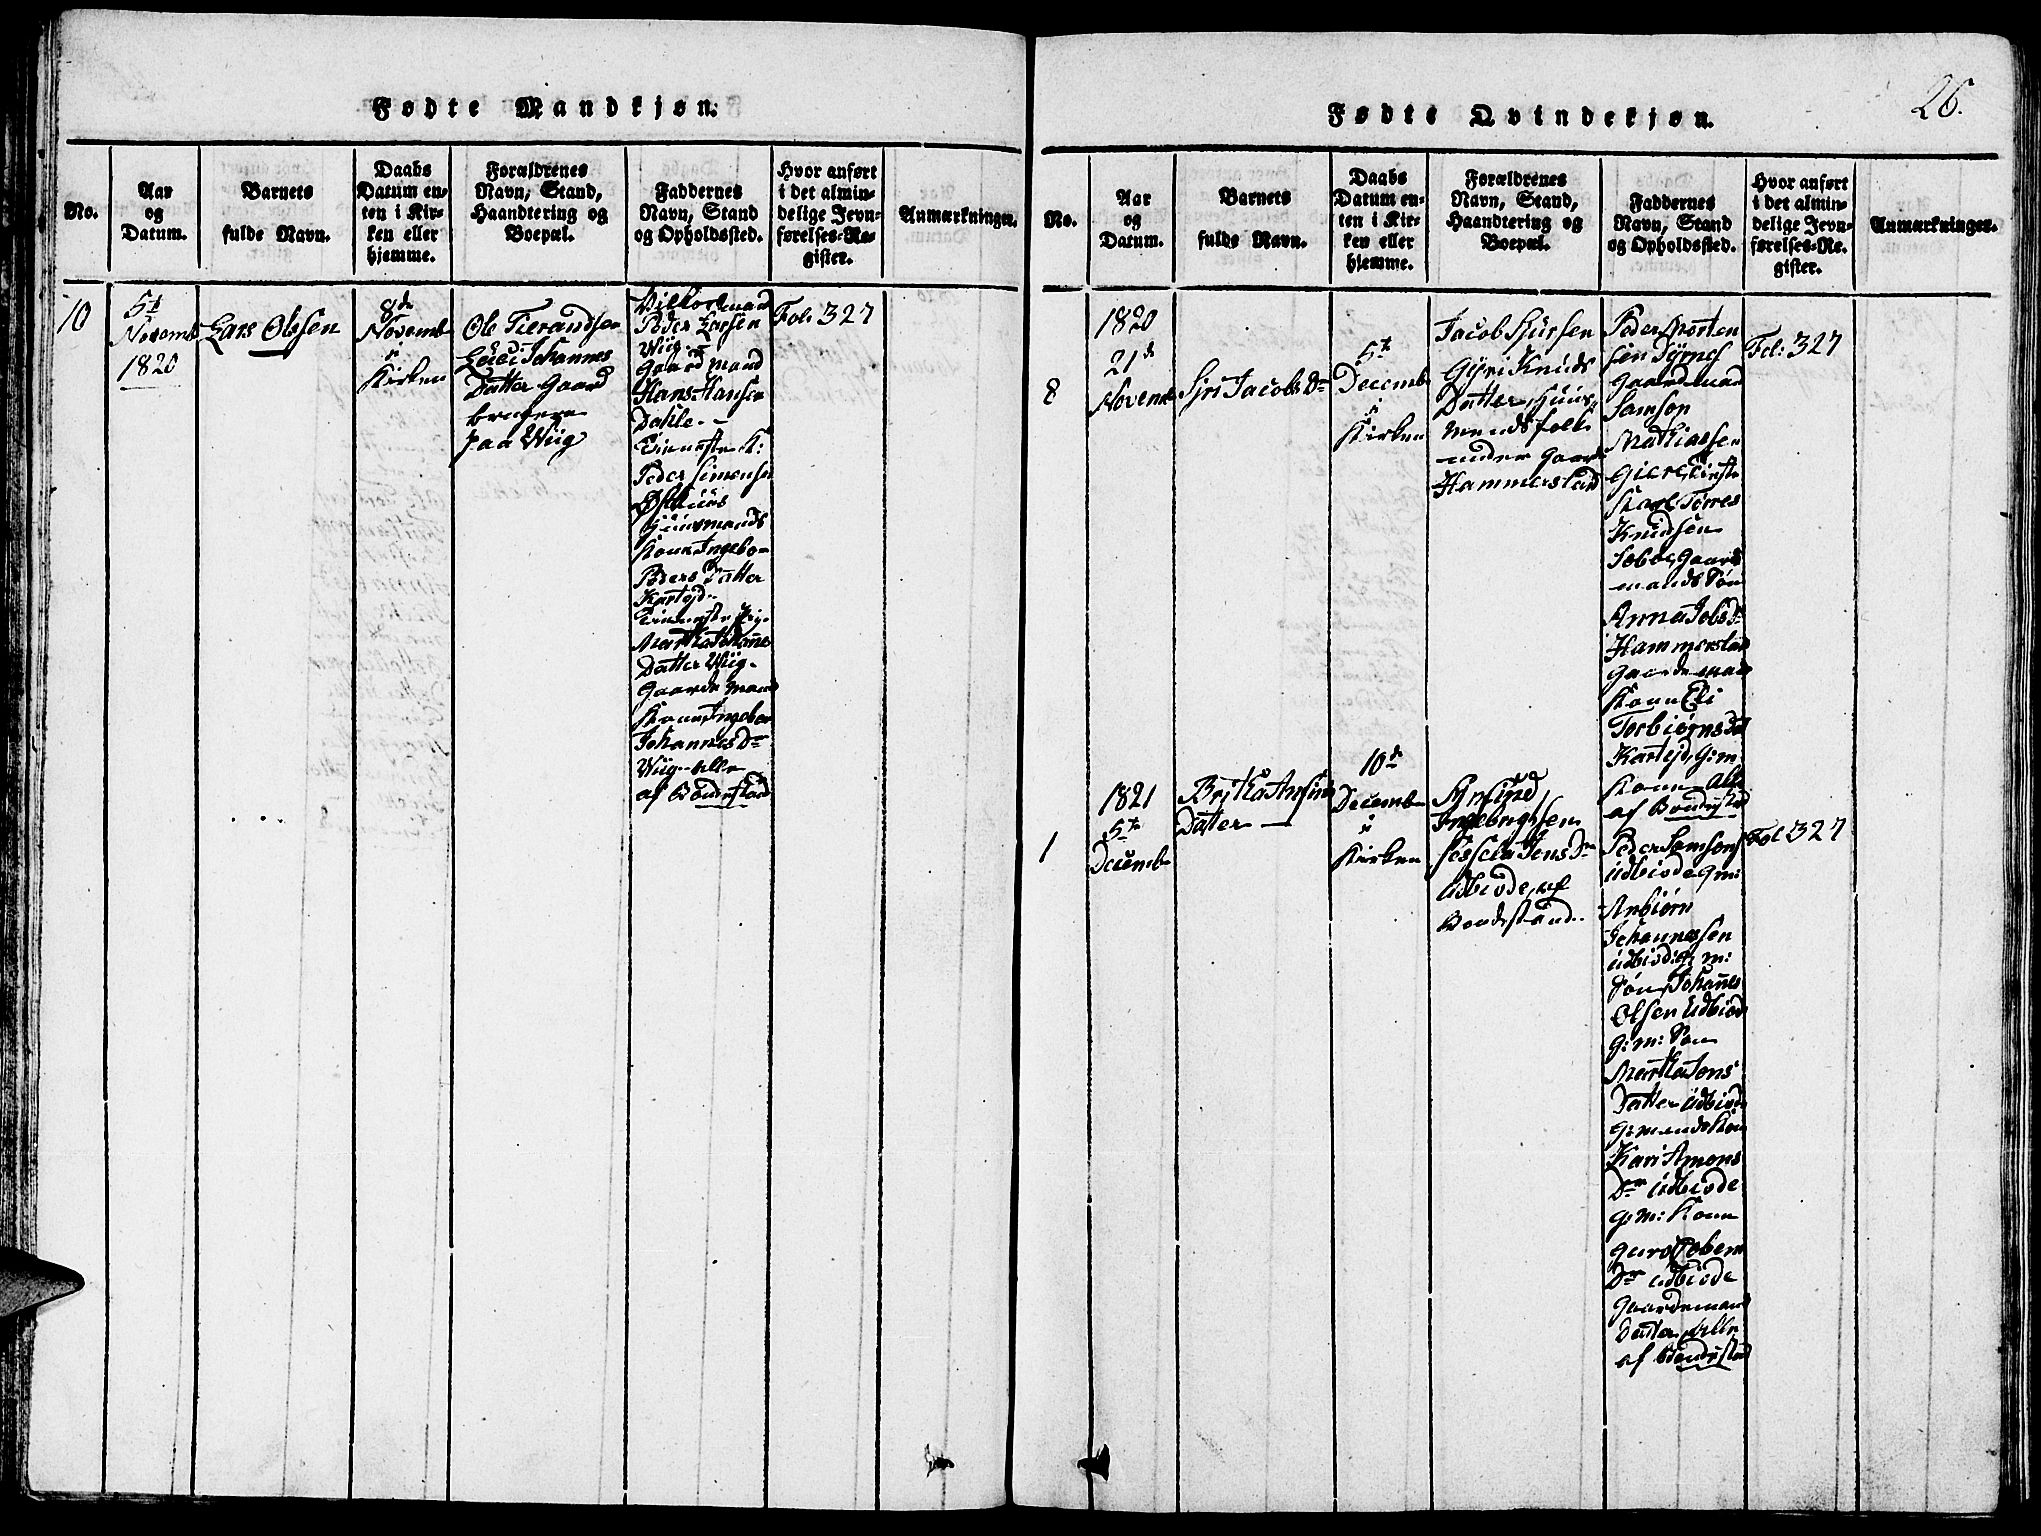 Fødte Mandkjøn.
No.
Aar
og
Datum.
Barnets
fulde Navn.
Daabs
Datum en-
ten i Kir-
ken eller
hjemme.
Forældrenes
Navn, Stand,
Haandtering og
Boepæl.
Faddernes
Navn, Stand
og Opholdssted.
Hvor anført
i det almin-
delige Jevn-
førelses-Re-
gister.
Anmærkninger.
10
5t
Novemb
1820
Lars Olssen
8de
Novemb
i
Kirken
Ole Tierandsen
Johannes
Datter Gaard
brugere
paa Wiig
Peder Larsen
Wiig
Gaardmand
Hans Hansen
Dahle
Tieneste K:
Peder Simonsen
Østhuus
Huusmands
Kone Ingebor
Peders Datter
Kartejd
Tieneste Pig.
Martha Johans
Datter Wiig
Gaardemand
Kone Ingebor
Johannes Dr
Wiig alle
af Bondestand
Fol: 327
26.
Fødte Qvindekjøn.
No.
Aar
og
Datum.
Barnets
fulde Navn.
Daabs
Datum en-
ten i Kir-
ken eller
hjemme.
Forældrenes
Navn, Stand,
Haandtering og
Boepæl.
Faddernes
Navn, Stand
og Opholdssted.
Hvor anført
i det almin-
delige Jevn-
førelses-Re-
gister.
Anmærkninger.
8
1820
21de
Novemb
Siri Jacobs Dr
5te
Decemb
i
Kirken
Jacob Siursen
Gyri Knuds
Datter, Huus
mandsfolk
under Gaard
Hammerstad
Peder Morten
sen Tyrnes
Gaardmand
Samson
Mathiassen
Giere, tienste
Karl Torres
Knudsen
Seboe, Gaard
mands Søn
Anna Jobs Dr
Hammerstad
Gaardemand
Kone Eli
Torbiørns Dr
Kartejd, G: m:
Kone Alle
af Bondestad
Fol: 327
1
1821
5te
Decemb
Britha Amund
Datter
10de
Decemb
i
Kirken
Amund
Ingebrigtsen
Sessela Jens Dr
Udbiode, af
Bondestand.
Peder Samsons
Udbiode G m:
Anbiørn
Johannessen
Udbiode G: m:
Søn, Johannes
Olsen Udbiod
G: m: Søn
Martha Jons
Datter Udbiod
G: mands Kone
Kari Amons
Dr Udbiode
G: m: Kone
Guro
Dr Udbiode
Gaardemand
Datter, Alle
af Bondestad
Fol 327